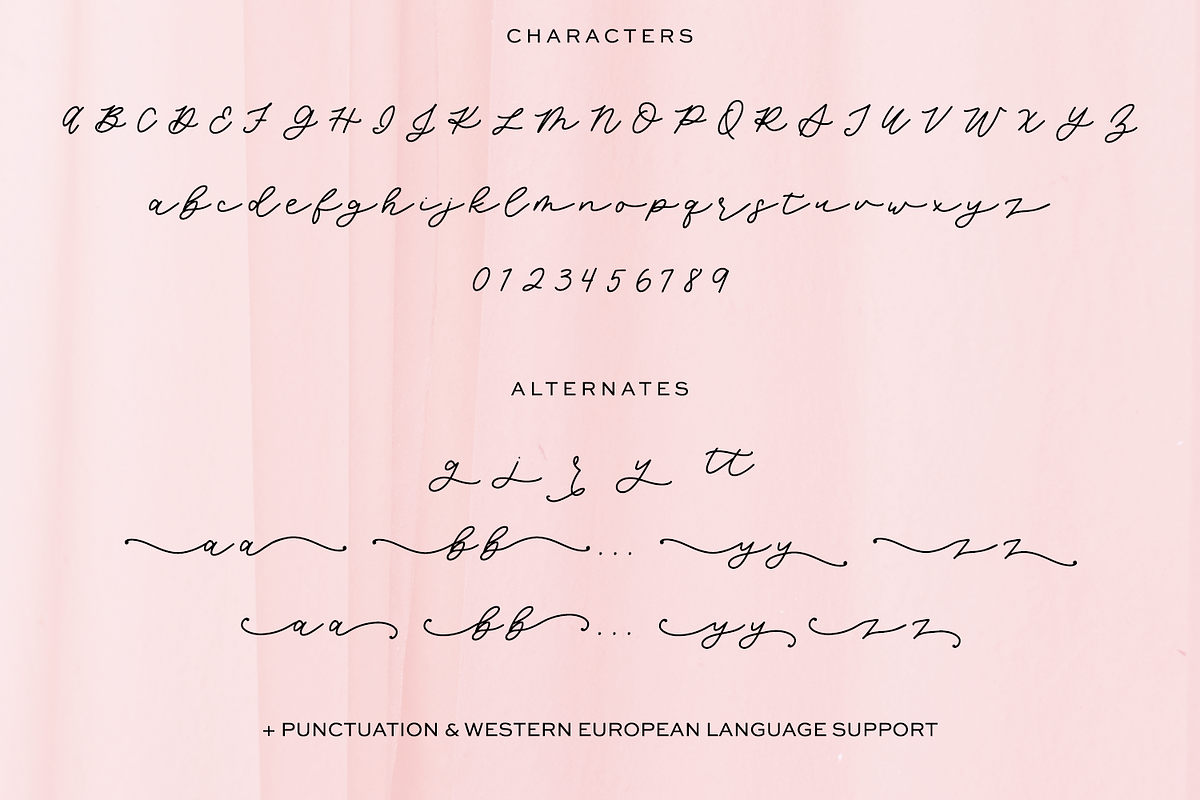 CHARACTERS
A B C D E F G H I J K L M N O P Q R S T U V W X Y Z
a b c d e f g h i j k l m n o p q r s t u v w x y z
0 1 2 3 4 5 6 7 8 9
ALTERNATES
g j r y tt
aa bb ... yy zz
aa bb ... yy zz
+ PUNCTUATION & WESTERN EUROPEAN LANGUAGE SUPPORT